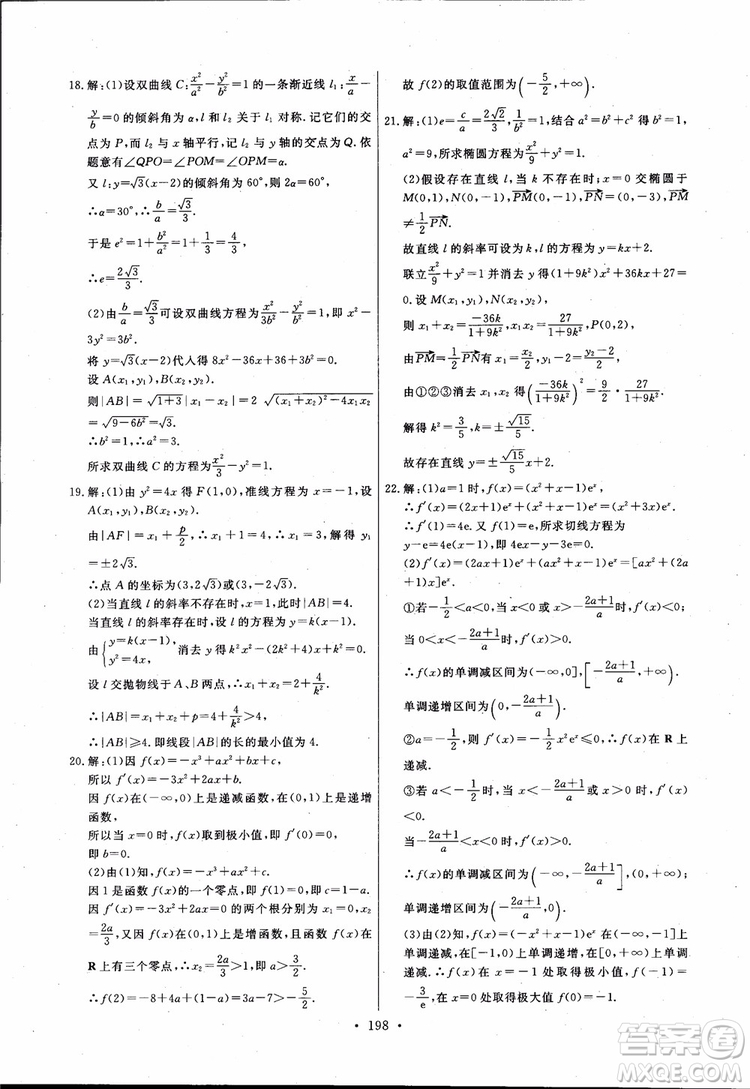 18. 解:(1)设双曲线 C:x²/a²-y²/b²=1 的一条渐近线 l₁:x/a-
y/b=0 的倾斜角为 α,l 和 l₂ 关于 l₁ 对称.记它们的交
点为 P,而 l₂ 与 x 轴平行,记 l₂ 与 y 轴的交点为 Q.依
题意有∠QPO=∠POM=∠OPM=α.
又 l:y=√3(x-2)的倾斜角为 60°,则 2α=60°,
∴α=30°,∴b/a=√3/3.
于是 e²=1+b²/a²=1+1/3=4/3
∴e=2√3/3.
(2)由b/a=√3/3可设双曲线方程为x²/3b²-y²/b²=1,即 x²-
3y²=3b².
将 y=√3(x-2)代入得 8x²-36x+36+3b²=0.
设 A(x₁,y₁),B(x₂,y₂)
则|AB|=√(1+3)|x₁-x₂|=2√((x₁+x₂)²-4x₁x₂)
=√(9-6b²)=√3.
∴b²=1,∴a²=3.
所求双曲线 C 的方程为x²/3-y²=1.
19. 解:(1)由 y²=4x 得 F(1,0),准线方程为 x=-1,设
A(x₁,y₁),B(x₂,y₂).
由|AF|=x₁+p/2,∴x₁+1=4,∴x₁=3,解得 y₁
=±2√3.
∴点 A 的坐标为(3,2√3)或(3,-2√3).
(2)当直线 l 的斜率不存在时,此时|AB|=4.
当直线 l 的斜率存在时,设 l 的方程为 y=k(x-1).
由{y=k(x-1), y²=4x, 消去 y 得 k²x²-(2k²+4)x+k²=0.
设 l 交抛物线于 A、B 两点,∴x₁+x₂=2+4/k².
∴|AB|=x₁+x₂+p=4+4/k²>4,
∴|AB|≥4.即线段|AB|的长的最小值为 4.
20. 解:(1)因 f(x)=-x³+ax²+bx+c,
所以 f′(x)=-3x²+2ax+b.
因 f(x)在(-∞,0)上是递减函数,在(0,1)上是递增
函数,
所以当 x=0 时,f(x)取到极小值,即 f′(0)=0.
即 b=0.
(2)由(1)知,f(x)=-x³+ax²+c.
因 1 是函数 f(x)的一个零点,即 f(1)=0,∴c=1-a.
因 f′(x)=-3x²+2ax=0 的两个根分别为 x₁=0,x₂
=2a/3,又因 f(x)在(0,1)上是增函数,且函数 f(x)在
R 上有三个零点,∴x₂=2a/3>1,即 a>3/2.
∴f(2)=-8+4a+(1-a)=3a-7>-5/2.
故 f(2)的取值范围为(-5/2,+∞).
21. 解:(1)e=c/a=2√2/3,1/b²=1,结合 a²=b²+c² 得 b²=1,
a²=9,所求椭圆方程为x²/9+y²=1.
(2)假设存在直线 l,当 k 不存在时;x=0 交椭圆于
M(0,1),N(0,-1),又 P(0,2),PM=(0,-1),PN
≠1/2PN.
故直线 l 的斜率可设为 k,l 的方程为 y=kx+2.
联立x²/9+y²=1 并消去 y 得(1+9k²)x²+36kx+27=
0.设 M(x₁,y₁),N(x₂,y₂),
则 x₁+x₂=-36k/(1+9k²),x₁x₂=27/(1+9k²),P(0,2)
由PM=1/2PN有 x₁=x₂/2,y₁-2=1/2(y₂-2)
由①②③消去 x₁,x₂得(-36k/(1+9k²))²=9/2·27/(1+9k²)
解得 k²=3/5,k=±√15/5
故存在直线 y=±√15/5x+2.
22. 解:(1)a=1 时,f(x)=(x²+x-1)eˣ.
∴f′(x)=(2x+1)eˣ+(x²+x-1)eˣ=(x²+3x)eˣ
∴f′(1)=4e.又 f(1)=e,所求切线方程为
y-e=4e(x-1),即 4ex-y-3e=0.
(2)f′(x)=(2ax+1)eˣ+(ax²+x-1)eˣ=[ax²+(2a
+1)x]eˣ
①若-1/2<a<0,当 x<0 或 x>-(2a+1)/a时,f′(x)<0;
当 0<x<-(2a+1)/a时,f′(x)>0.
∴f(x)的单调减区间为(-∞,0],[-(2a+1)/a,+∞);
单调递增区间为(0,-(2a+1)/a).
②a=-1/2,f′(x)=-1/2x²eˣ≤0,∴f(x)在 R 上
递减.
③若 a<-1/2,当 x<-(2a+1)/a或 x>0 时,f′(x)
<0.
当-(2a+1)/a<x<0 时,f′(x)>0.
∴f(x)的单调减区间为(-∞,-(2a+1)/a],(0,+∞)
单调递增区间为(-(2a+1)/a,0).
(3)由(2)知,a=-1 时,f(x)=(-x²+x-1)eˣ
在(-∞,-1)上单调递减,在[-1,0]上单调递增,在[0,+∞)上单调
递减.∴f(x)在 x=-1 处取得极小值,f(-1)=
-3/e,在 x=0 处取得极大值 f(0)=-1.
• 198 •
答案圈
MXQE.COM